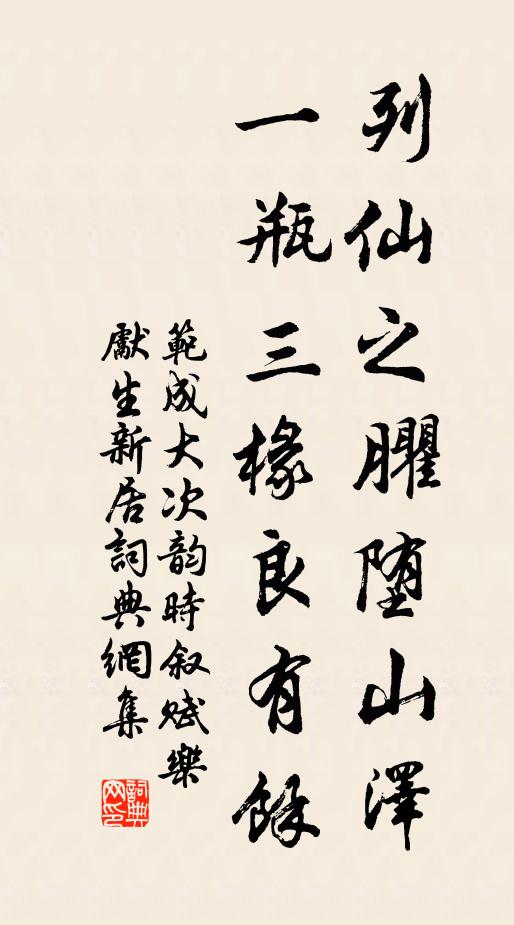 列仙之臞堕山澤
一瓶三椽良有餘
範成大次韵時叙赋樂
獻生新居詞典網集
詞典网印